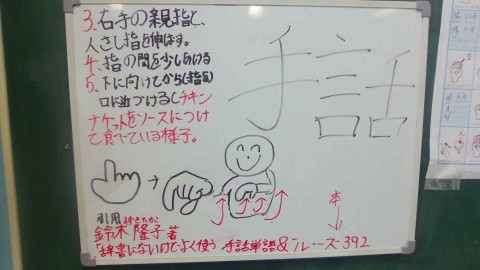 3、右手の親指と、
人さし指を伸ばす。
4、指の間を少しあける
5、下に向けてから(指を)
口に近づける(チキン
ナゲットをソースにつけ
て食べている様子。
手話
引用
鈴木隆子著
本
「辞書にないけどよく使う 手話単語&フレーズ392